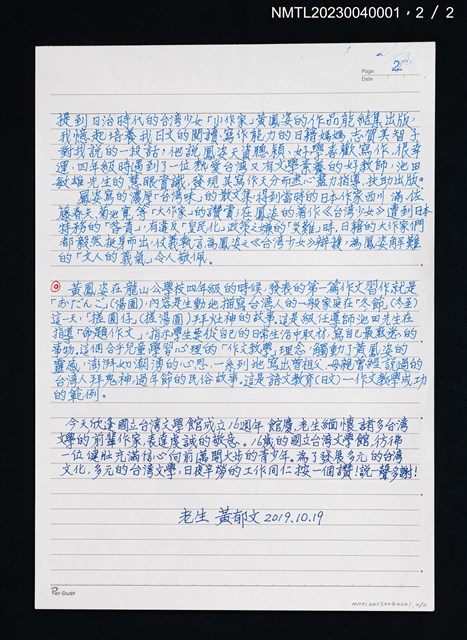 NMTL20230040001，2 / 2
Page 2
Date
提到日治時代的台湾少女「小作家」黃鳳姿的作品能結集出版，
我憶起培養我日文的閱讀、寫作能力的日籍媽媽志賀美智子
對我說的一段話，他說鳳姿天資聰穎、好學喜歡寫作、很幸
運，四年級時遇到了一位熱愛台湾又有文學素養的好教師，池田
敏雄先生的慧眼賞識，發現其寫作天分而悉心盡力指導，扶助出版。
鳳姿寫的濃厚「台湾味」的散文集，得到當時的日本作家西川滿、佐
藤春夫、菊池寬，等「大作家」的讚賞；在鳳姿的著作《台湾少女》遭到日本
特務的「答責」有違及「皇民化」政策之嫌的「文難」時，日籍的大作家們
都毅然挺身而出，仗義執言為鳳姿之《台湾少女》辯護，為鳳姿解難
的「文人的義氣」令人敬佩。
黃鳳姿在龍山公學校四年級的時候，發表的第一篇作文習作就是
「おだんご」(湯圓)，內容是生動地描寫台湾人的一般家庭在「冬節」(冬至)
這一天，「搓圓仔」(搓湯圓)拜灶神的故事。這是級任導師池田先生在
指導「命題作文」，指示學生要從自己的日常生活中取材，寫自己最熟悉的
事物，這個合乎兒童學習心理的「作文教學」理念，觸動了黃鳳姿的
靈感，澎湃如潮湧的心思，一系列地寫出曾祖父、母親曾經說過的
台湾人拜鬼神，過年節的民俗故事，這是語文教育(日文)－作文教學成功
的範例。
今天欣逢國立台湾文學館成立16週年館慶，老生緬懷諸多台湾
文學的前輩作家，表達虔誠的敬意。16歲的國立台湾文學館，彷彿
一位健壯充滿信心向前邁開大步的青少年。為了發展多元的台湾
文化，多元的台湾文學，日夜辛勞的工作同仁按一個讚！説一聲多謝！
老生 黃郁文 2019.10.19
Per-Dust
NMTL20230040001